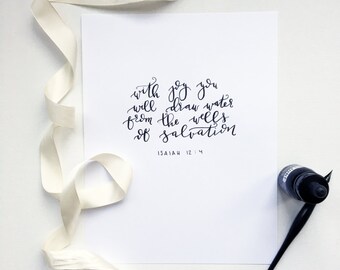 with joy you
will draw water
from the wells
of salvation
ISAIAH 12:4